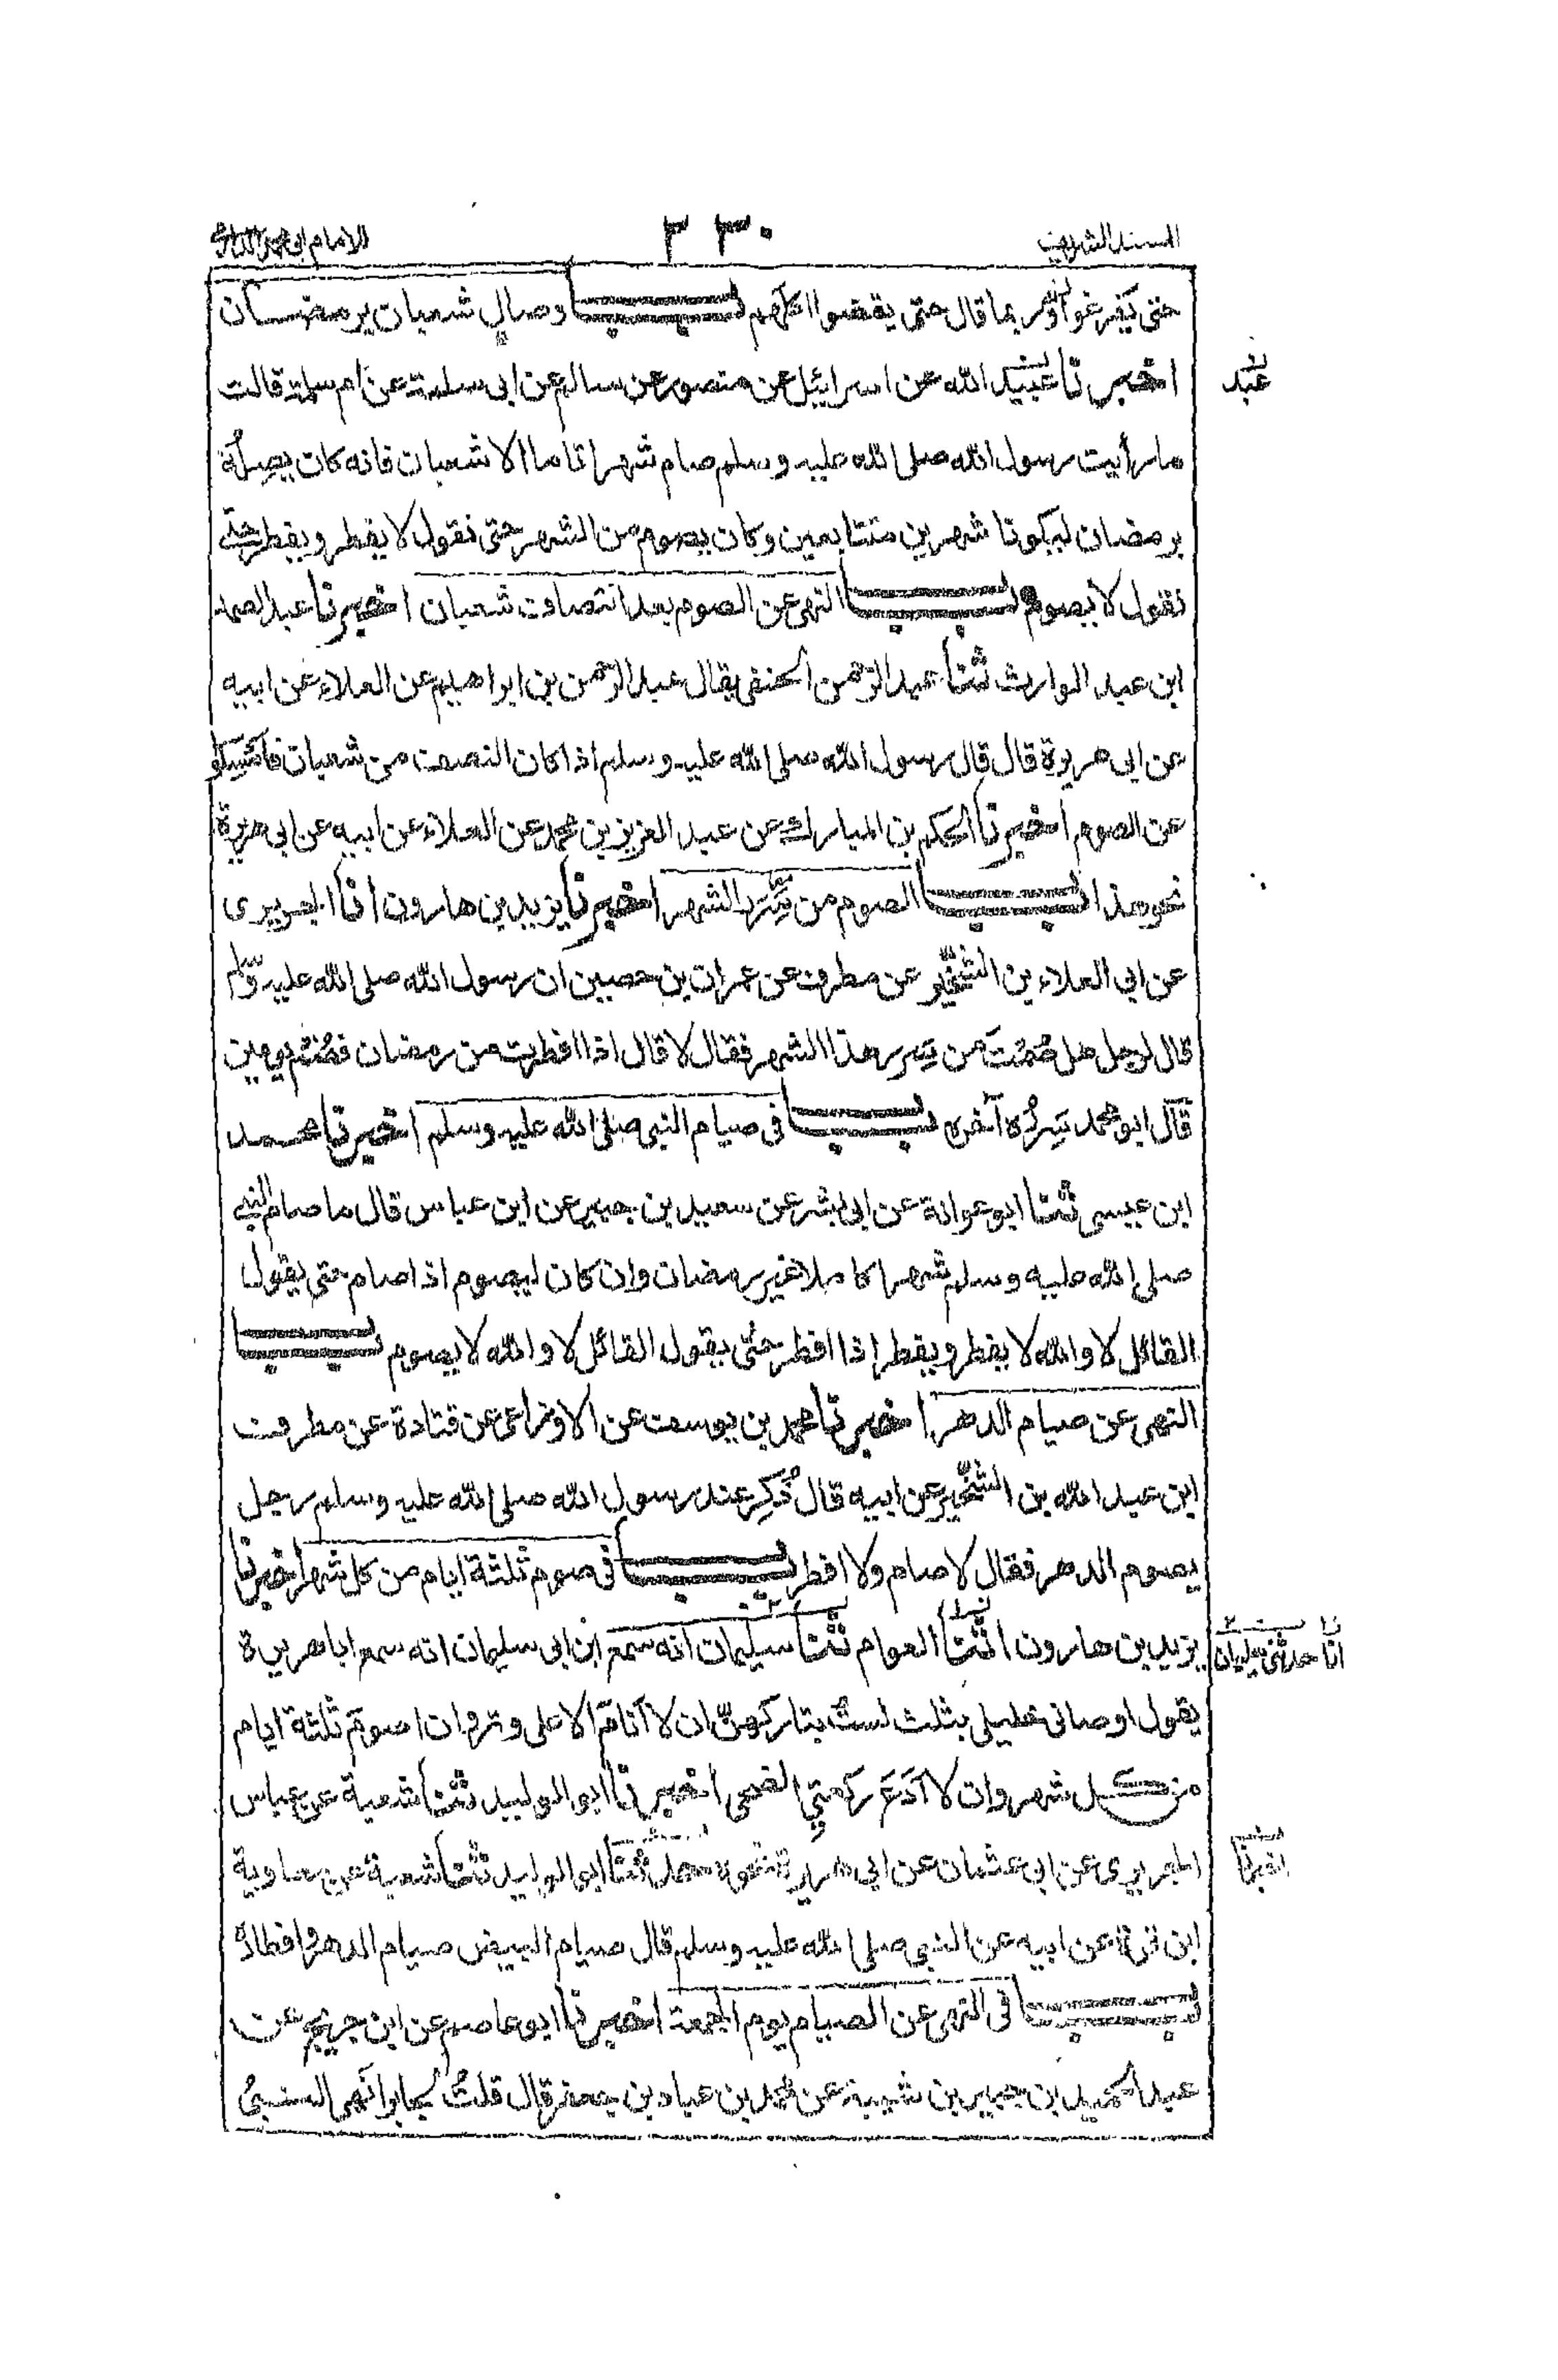 المسند الشريف
٣٣٠
للامام ابي محمد الدارمي
حتى يفرغوا وربما قال حتى يقضوا اكلهم باب وصال شعبان برمضان
اخبرنا عبيد الله عن اسرائيل عن منصور عن سالم عن ابي سلمة عن ام سلمة قالت
عبد
ما رأيت رسول الله صلى الله عليه وسلم صام شهرا تاما الا شعبان فانه كان يصله
برمضان ليكونا شهرين متتابعين وكان يصوم من الشهر حتى نقول لا يفطر ويفطر حتى
نقول لا يصوم باب النهي عن الصوم بعد انتصاف شعبان اخبرنا عبد الصمد
ابن عبد الوارث ثنا عبد الرحمن الحنفي يقال عبد الرحمن بن ابراهيم عن العلاء عن ابيه
عن ابي هريرة قال قال رسول الله صلى الله عليه وسلم اذا كان النصف من شعبان فامسكوا
عن الصوم اخبرنا الحكم بن المبارك عن عبد العزيز بن محمد عن العلاء عن ابيه عن ابي هريرة
نحو هذا باب الصوم من سرر الشهر اخبرنا يزيد بن هارون انا الجريري
عن ابي العلاء بن الشخير عن مطرف عن عمران بن حصين ان رسول الله صلى الله عليه وسلم
قال لرجل هل صمت من سرر هذا الشهر فقال لا قال اذا افطرت من رمضان فصم يومين
قال ابو محمد سرره آخره باب في صيام النبي صلى الله عليه وسلم اخبرنا محمد
ابن عيسى ثنا ابو عوانة عن ابي بشر عن سعيد بن جبير عن ابن عباس قال ما صام النبي
صلى الله عليه وسلم شهرا كاملا غير رمضان وان كان ليصوم اذا صام حتى يقول
القائل لا والله لا يفطر ويفطر اذا افطر حتى يقول القائل لا والله لا يصوم باب
النهي عن صيام الدهر اخبرنا محمد بن يوسف عن الاوزاعي عن قتادة عن مطرف
ابن عبد الله بن الشخير عن ابيه قال ذُكِر عند رسول الله صلى الله عليه وسلم رجل
يصوم الدهر فقال لا صام ولا افطر باب في صوم ثلثة ايام من كل شهر اخبرنا
يزيد بن هارون ثنا العوام ثنا سليمان انه سمع ابن ابي سليمان انه سمع ابا هريرة
انا حدثني سليمان
يقول اوصاني خليلي بثلث لست بتاركهن ان لا انام الا على وتر وان اصوم ثلثة ايام
من كل شهر وان لا ادع ركعتي الضحى اخبرنا ابو الوليد ثنا شعبة عن عباس
الجريري عن ابي عثمان عن ابي هريرة نحوه ثنا ابو الوليد ثنا شعبة عن معاوية
اخبرنا
ابن قرة عن ابيه عن النبي صلى الله عليه وسلم قال صيام البيض صيام الدهر وافطاره
باب في النهي عن الصيام يوم الجمعة اخبرنا ابو عاصم عن ابن جريج عن
عبد الحميد بن جبير بن شيبة عن محمد بن عباد بن جعفر قال قلت لجابر انهى النبي